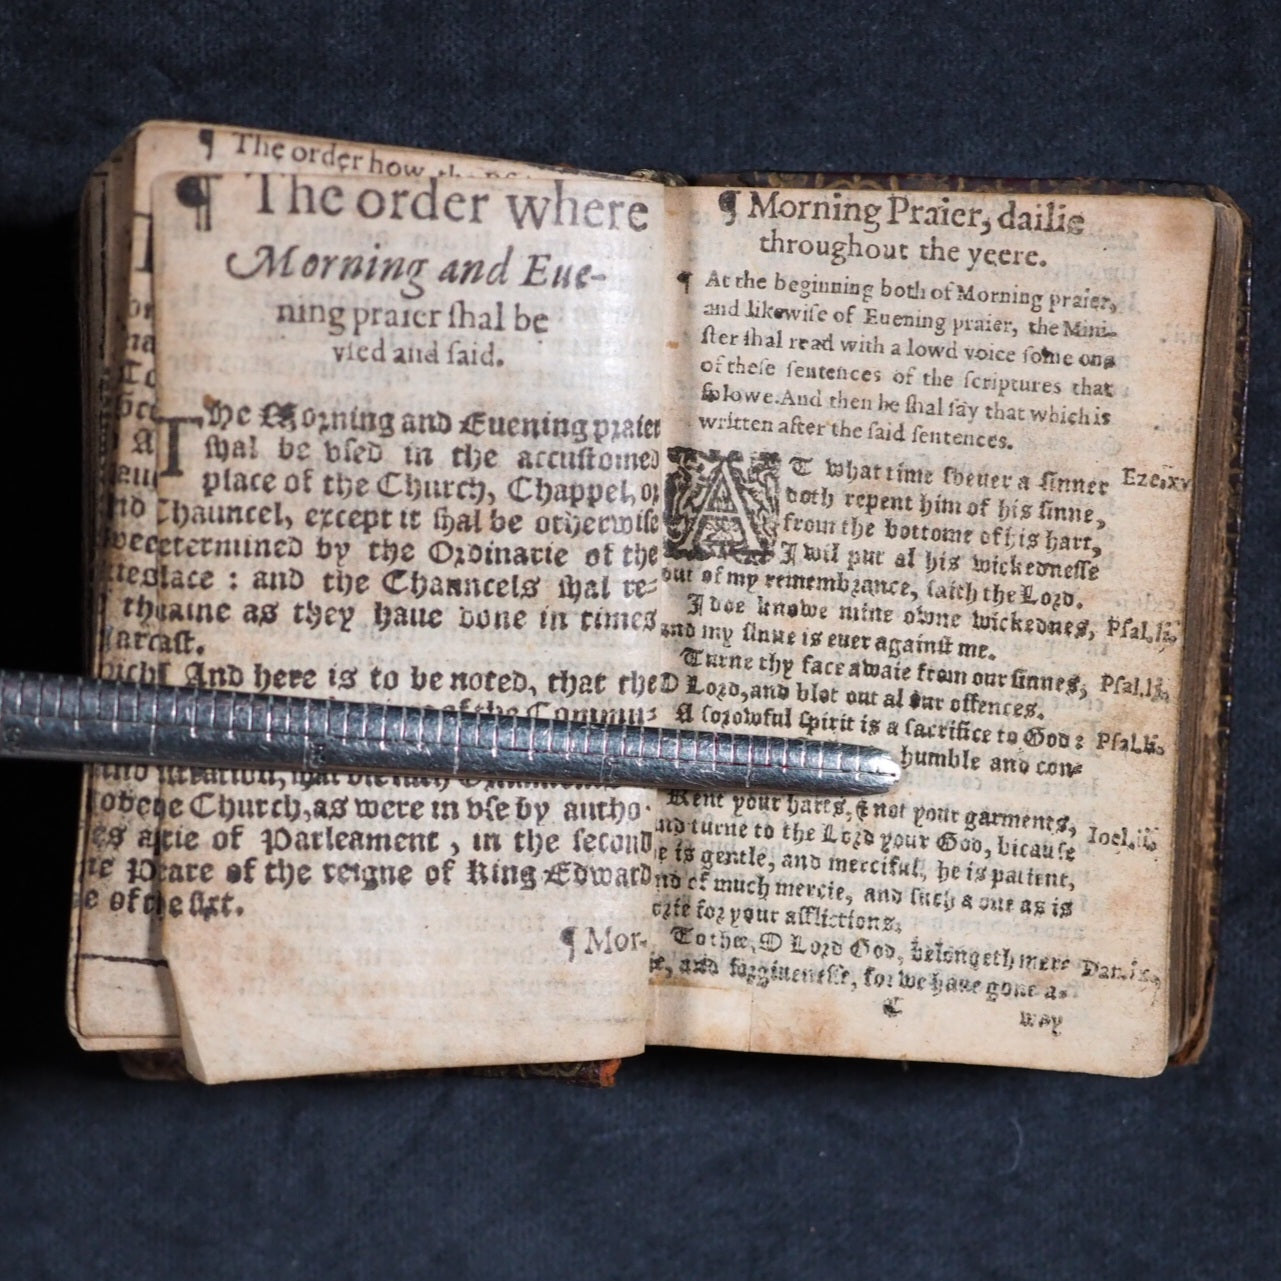 ¶ The order how, the
¶ The order where
Morning and Eue-
ning praier ſhal be
vſed and ſaid.
The Morning and Euening praier
ſhal be vſed in the accuſtomed
place of the Church, Chappel, or
Chauncel, except it ſhal be otherwiſe
determined by the Ordinarie of the
place : and the Chauncels ſhal re-
maine as they haue done in times
And here is to be noted, that the
of the Commu-
Church, as were in vſe by autho-
of Parleament, in the ſecond
yeare of the reigne of King Edward
the ſixt.
¶ Mor-
¶ Morning Praier, dailie
throughout the yeere.
¶ At the beginning both of Morning praier,
and likewiſe of Euening praier, the Mini-
ſter ſhal read with a lowd voice ſome one
of theſe ſentences of the ſcriptures that
folowe. And then he ſhal ſay that which is
written after the ſaid ſentences.
AT what time ſoeuer a ſinner
doth repent him of his ſinne,
from the bottome of his hart,
I wil put al his wickedneſſe
out of my remembrance, ſaith the Lord.
I doe knowe mine owne wickednes,
and my ſinne is euer againſt me.
Turne thy face awaie from our ſinnes,
O Lord, and blot out al our offences.
A ſorowful ſpirit is a ſacrifice to God:
humble and con-
Rent your harts, & not your garments,
and turne to the Lord your God, bicauſe
he is gentle, and merciful, he is patient,
and of much mercie, and ſuch a one as is
ſorie for your afflictions.
To thee, O Lord God, belongeth mere
cie, and forgiueneſſe, for we haue gone a-
way
Pſal.
Pſal.
Pſal.
Ioel.
Dan.